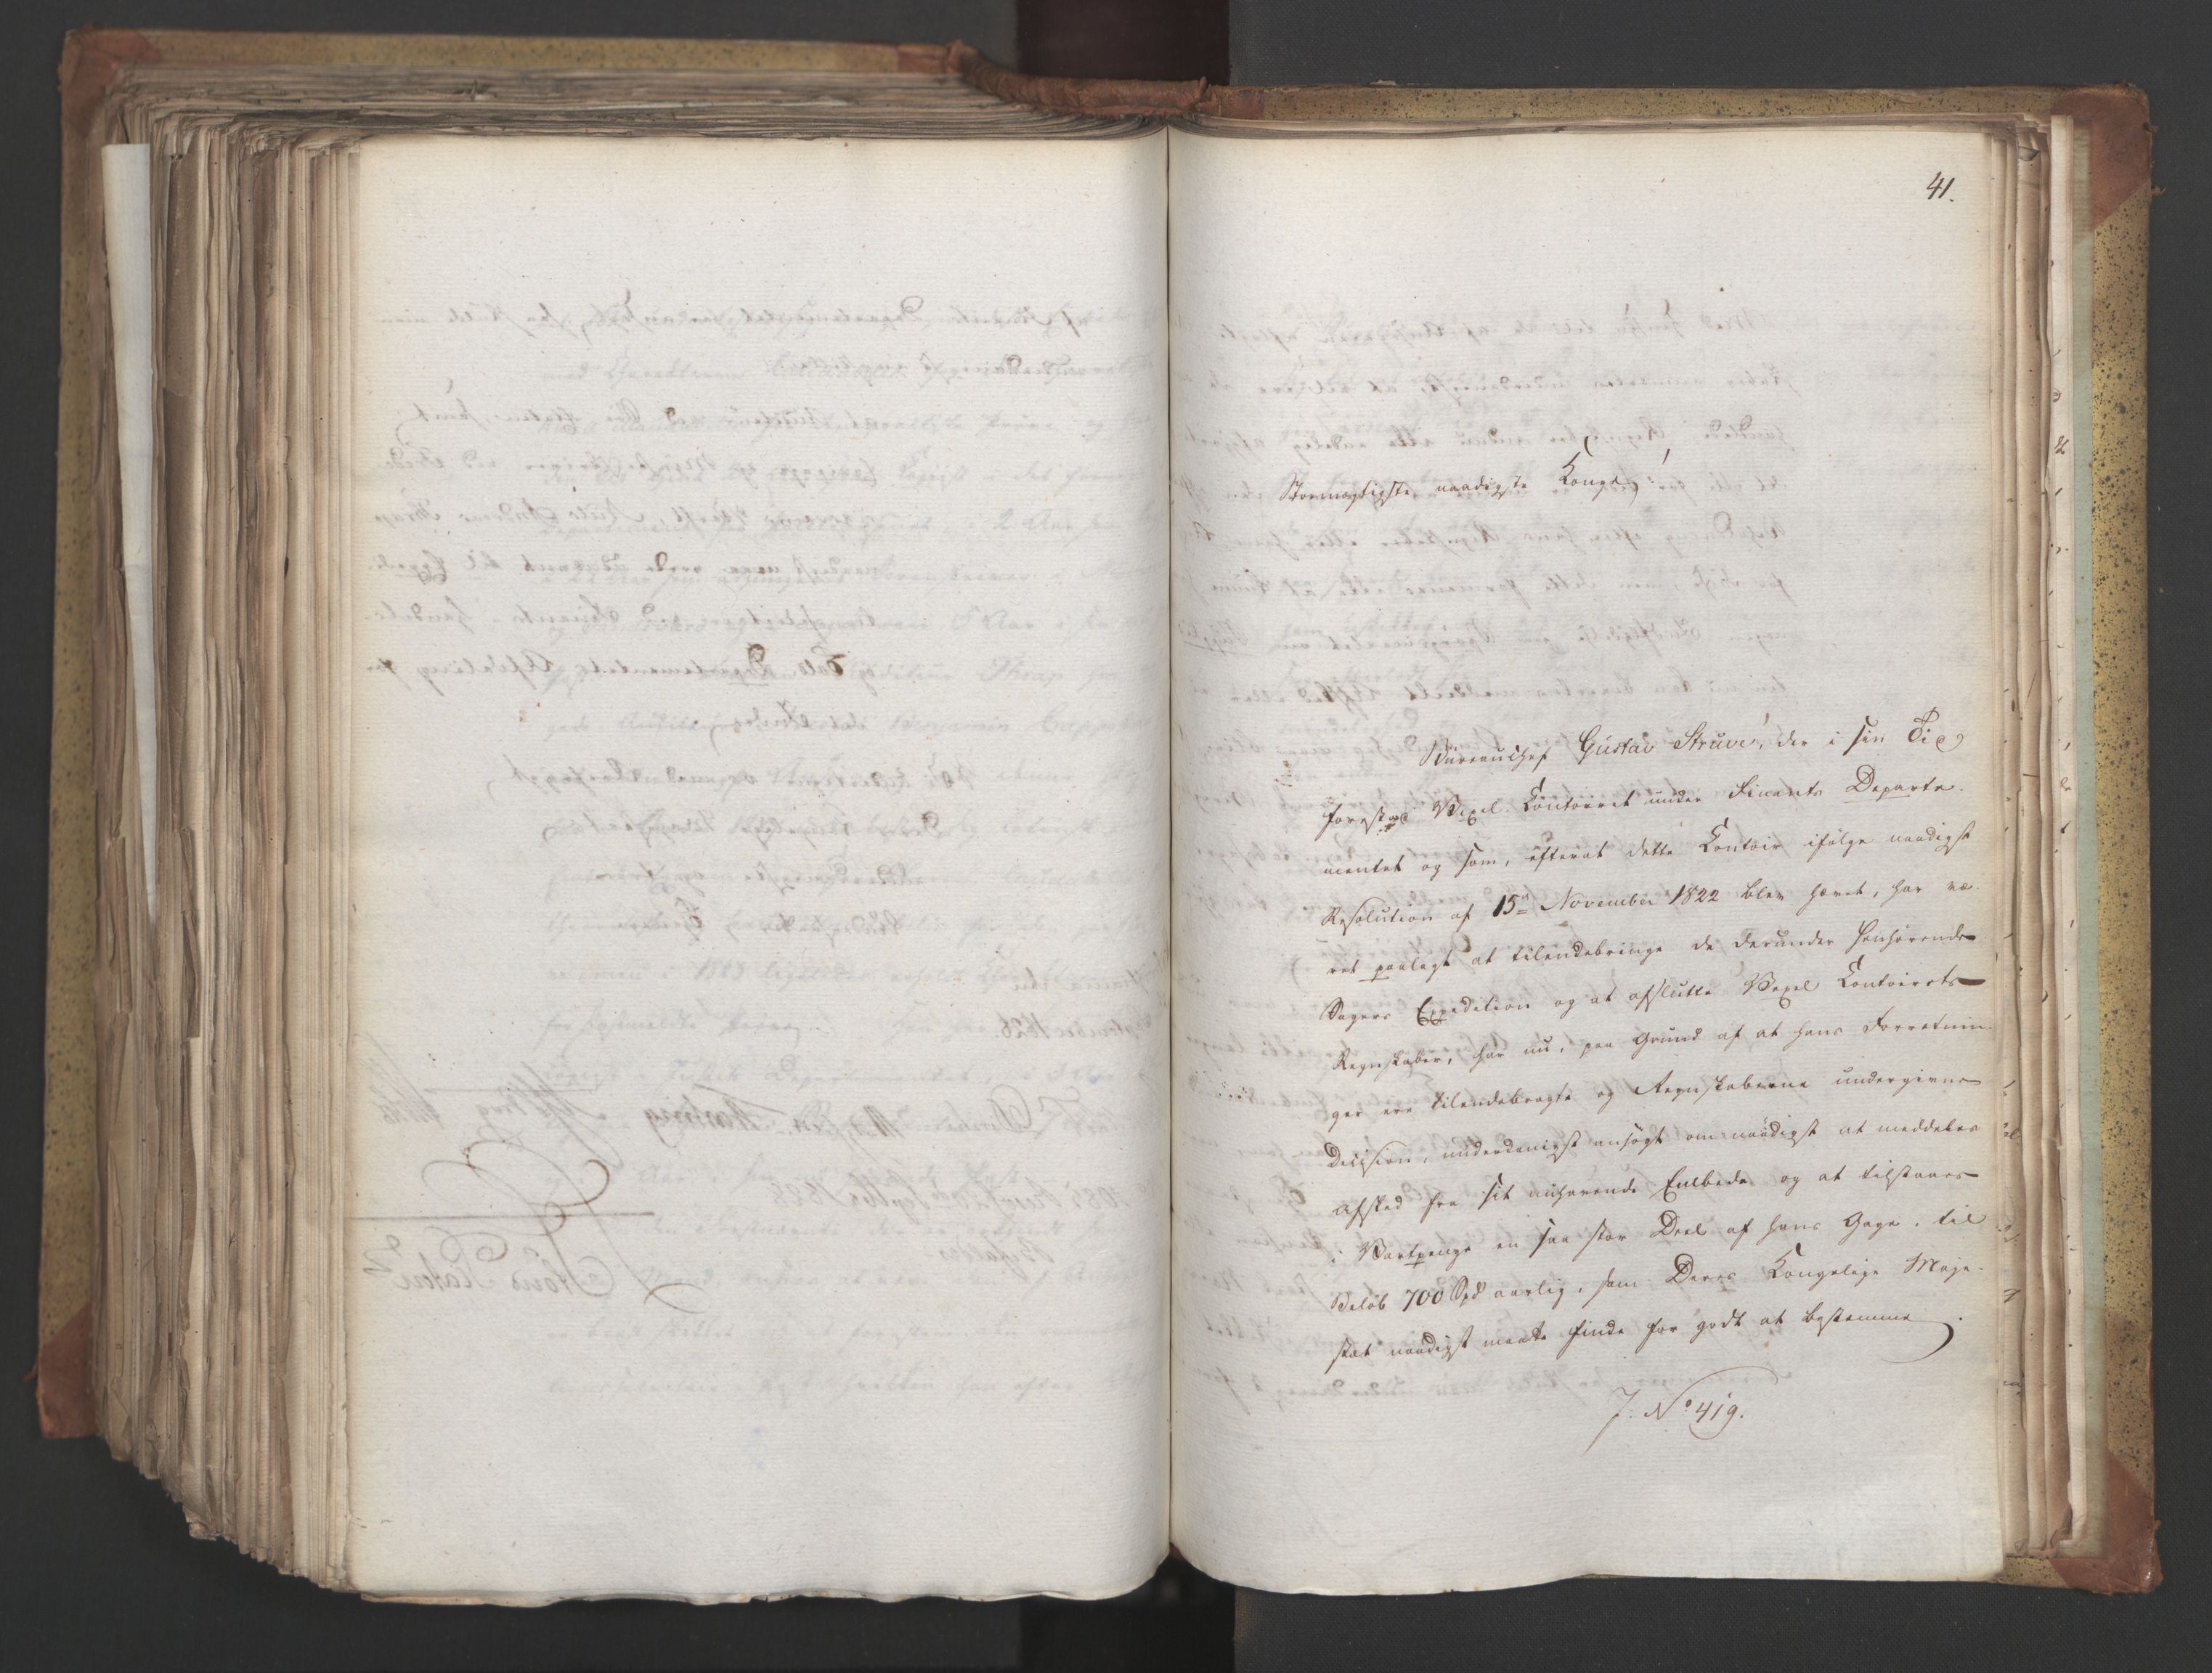 41.
Stormægtigste naadigste Konge!
Büreauchef Gustav Struve, der i sin Tid
forestod Vexel-Contoiret under Finants Departe-
mentet og som, efterat dette Contoir ifølge naadigst
Resolution af 15de November 1822 blev hævet, har væ-
ret paalagt at tilendebringe de derunder henhørende
Sagers Expedition og at afslutte Vexel Contoirets
Regnskaber, har nu, paa Grund af at hans Forretnin-
ger ere tilendebragte og Regnskaberne undergivne
Decision, underdanigst ansøgt om naadigst at meddeles
Afsked fra sit anførende Embede og at tilstaaes
i Vartpenge en saa stor Deel af hans Gage, til
Beløb 700 Spd aarlig, som Deres Kongelige Maje-
stæt naadigst maatte finde for godt at bestemme.
J. No 419.